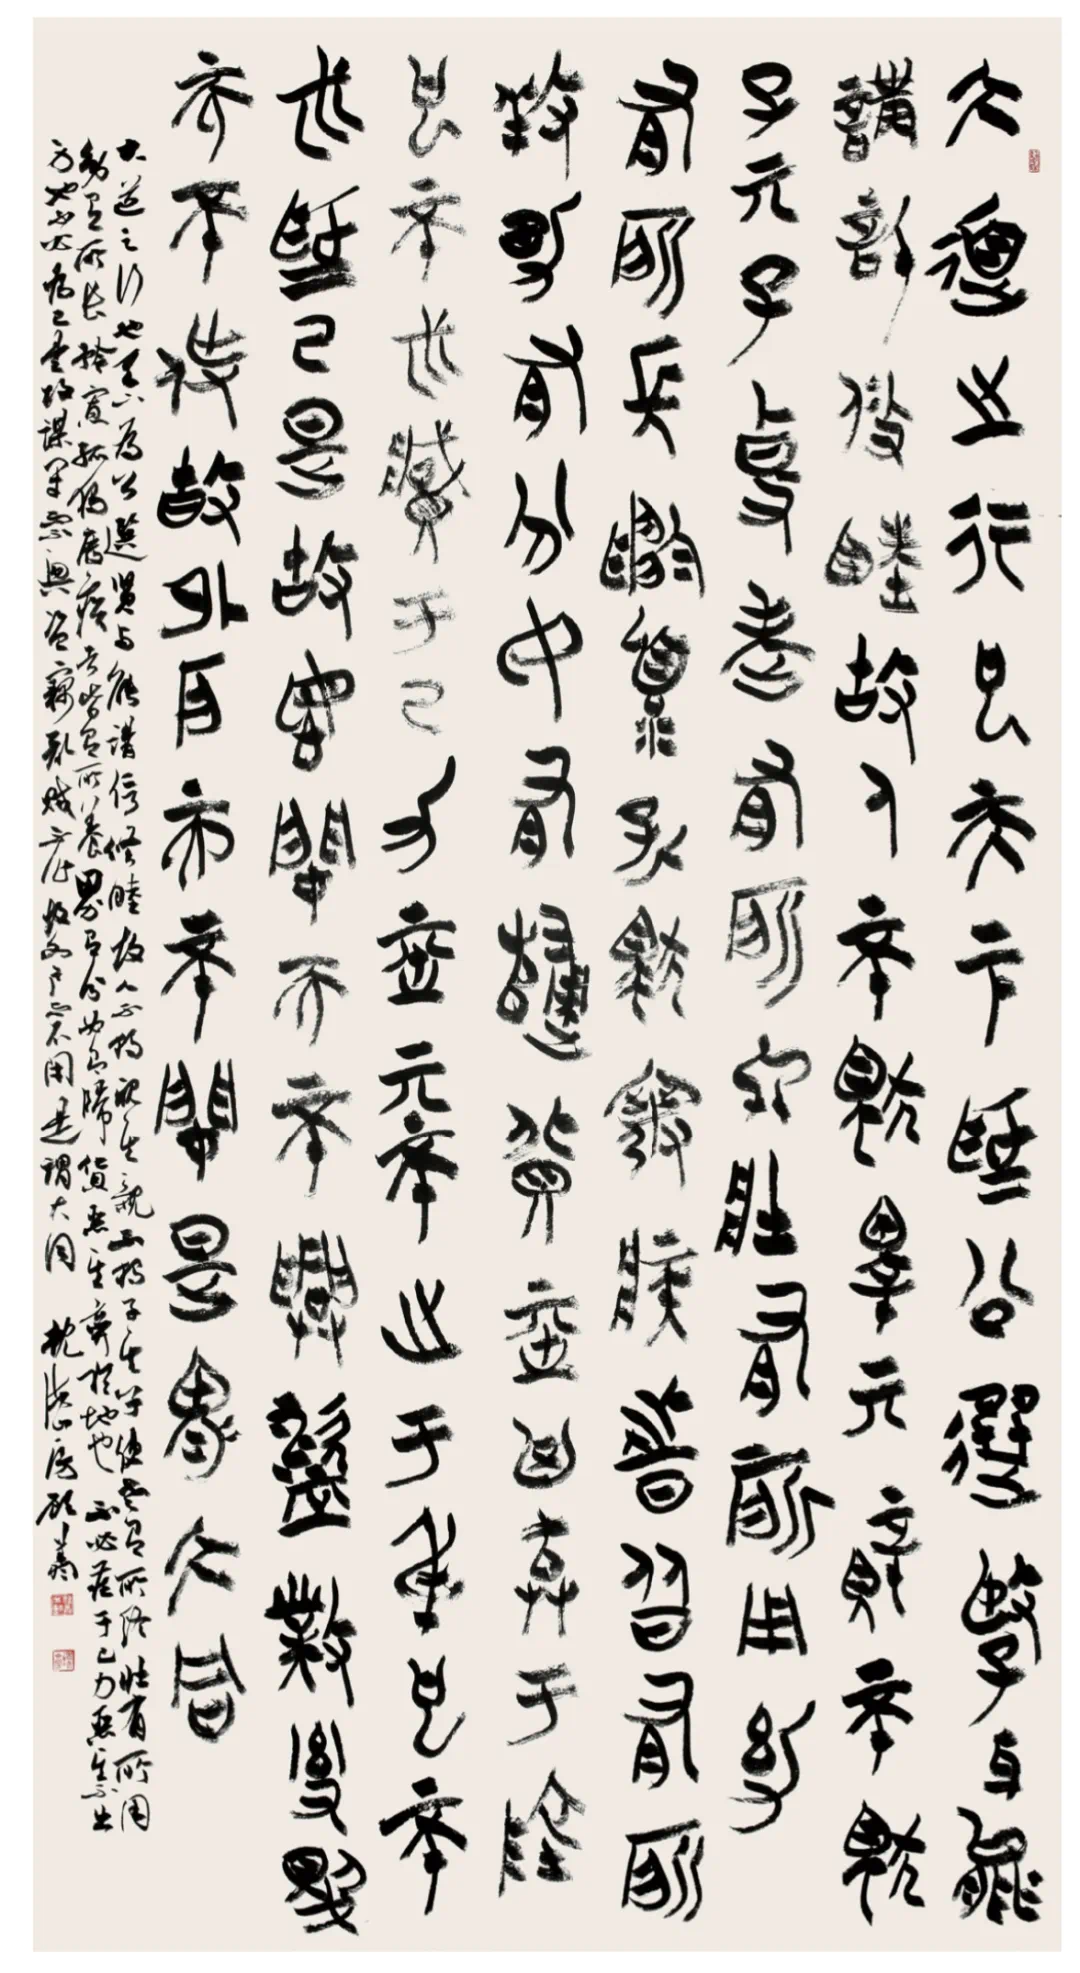 大道之行也天下為公選賢與能
講信修睦故人不獨親其親不獨
子其子使老有所終壯有所用幼
有所長矜寡孤獨廢疾者皆有所
養男有分女有歸貨惡其棄于地
也不必藏于己力惡其不出于身也不
必為己是故謀閉而不興盜竊亂賊
而不作故外戶而不閉是謂大同
大道之行也天下為公選賢与能講信修睦故人不獨親其親不獨子其子使老有所終壯有所用
幼有所長矜寡孤獨廢疾者皆有所養男有分女有歸貨惡其棄於地也不必藏于己力惡其不出
于身也不必為己是故謀閉而不興盜竊亂賊不作故外戶而不閉是謂大同